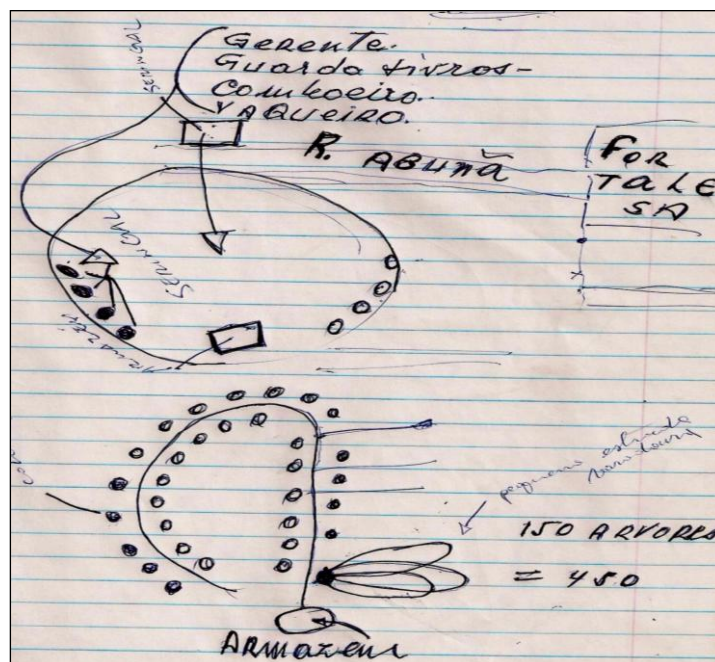 SERINGAL
Gerente.
Guarda Livros-
Comboeiro.
VAQUEIRO.
R. ABUNÃ
FOR
TALE
SA
SERINGAL
ARMAZÉM
pequena estrada
150 ARVORES
= 450
ARMAZEM